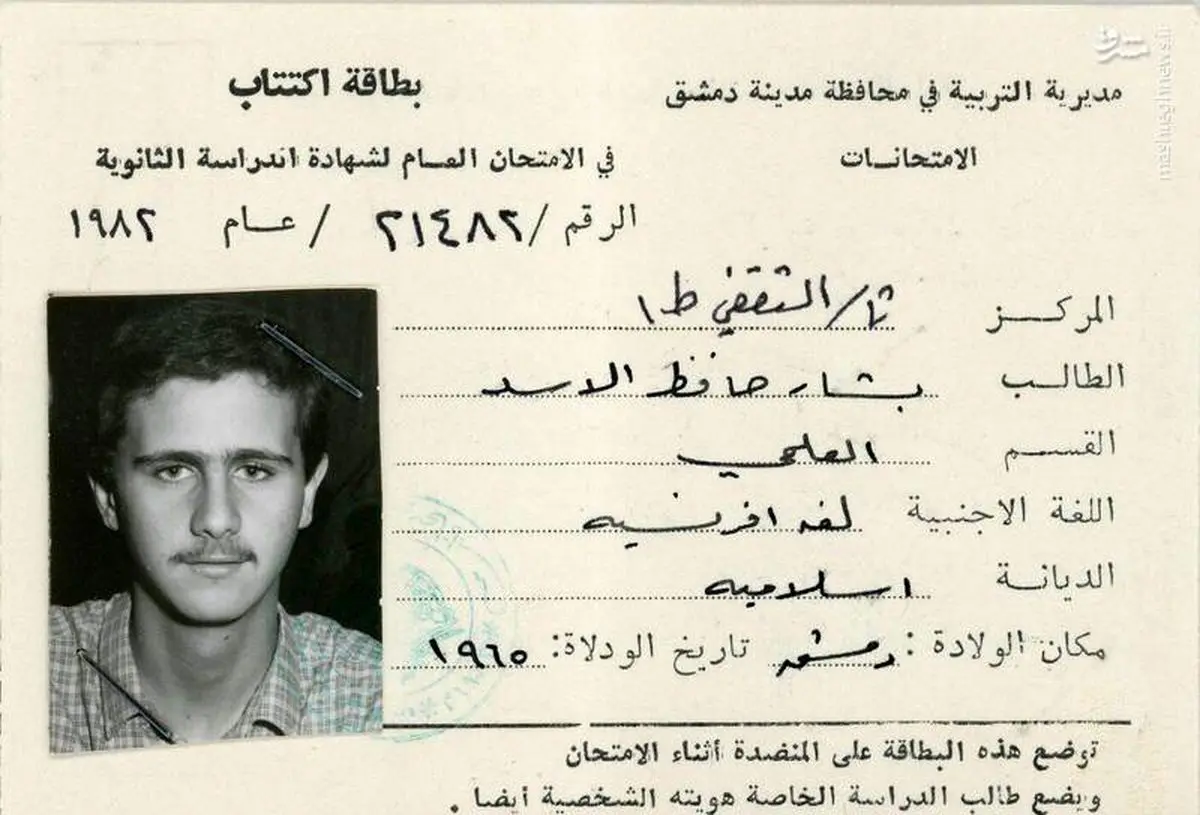 مديرية التربية في محافظة مدينة دمشق
الامتحانــات
بطاقة اكتتاب
في الامتحان العــام لشهادة الدراسة الثانوية
الرقم / ٢١٤٨٢ / عــام ١٩٨٢
المركــــز ثا/ الثقفي ط ١
الطالــب بشار حافظ الاسد
القســـم العلمي
اللغة الاجنبية لغه افرنسيه
الديانــة اسلاميه
مكان الولادة : دمشق تاريخ الودلاة: ١٩٦٥
توضع هذه البطاقة على المنضدة أثناء الامتحان
ويضع طالب الدراسة الخاصة هويته الشخصية أيضا .
مشرق
mashreghnews.ir